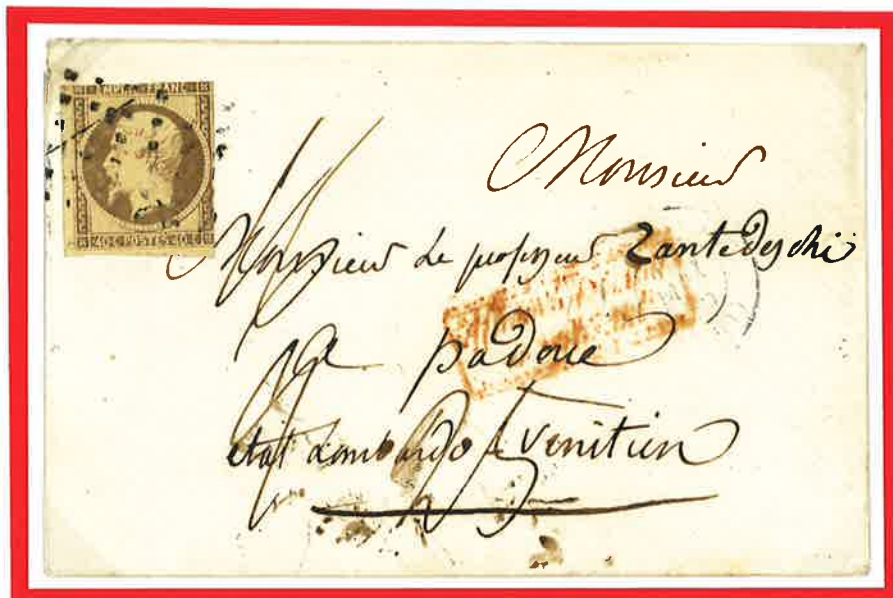 EMPIRE FRANC
40 C POSTES 40 C
Monsieur
Monsieur Le professeur Zantedeschi
a padoue
état Lombardo-Venitien